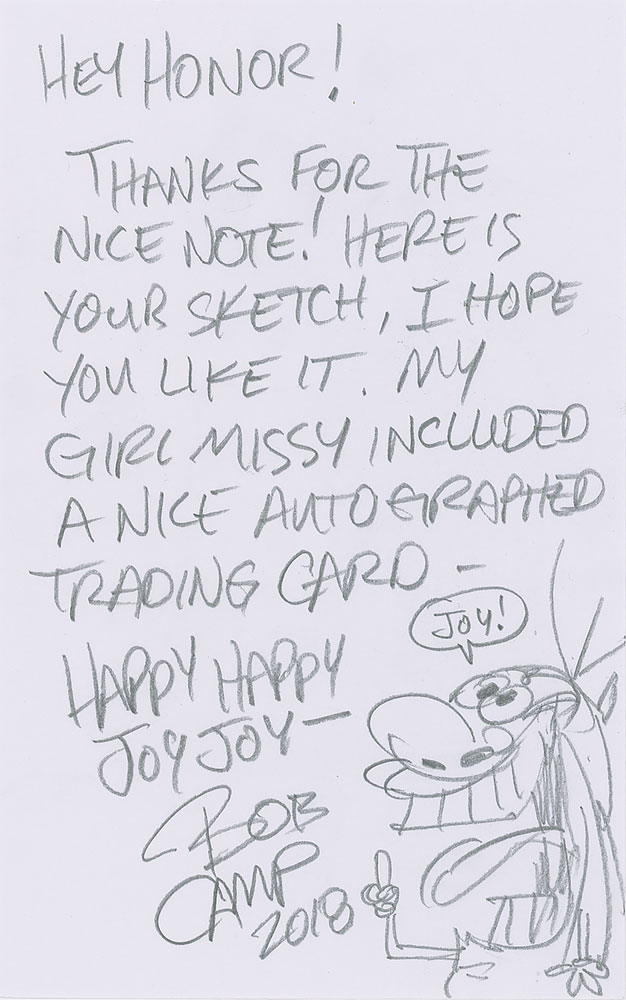 HEY HONOR!
THANKS FOR THE
NICE NOTE! HERE IS
YOUR SKETCH, I HOPE
YOU LIKE IT. MY
GIRL MISSY INCLUDED
A NICE AUTOGRAPHED
TRADING CARD —
JOY!
HAPPY HAPPY
JOY JOY —
BOB
CAMP
2018